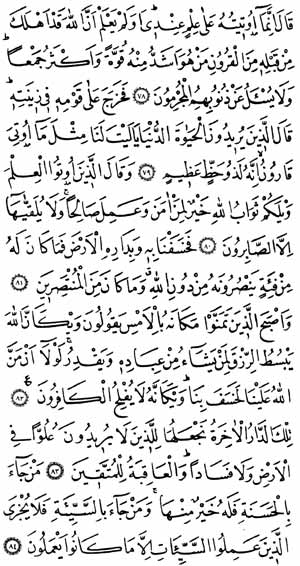 قَالَ اِنَّمَٓا اُو۫ت۪يتُهُ عَلٰى عِلْمٍ عِنْد۪يۜ اَوَلَمْ يَعْلَمْ اَنَّ اللّٰهَ قَدْ اَهْلَكَ
مِنْ قَبْلِه۪ مِنَ الْقُرُونِ مَنْ هُوَ اَشَدُّ مِنْهُ قُوَّةً وَاَكْثَرُ جَمْعاًۜ
وَلَا يُسْـَٔلُ عَنْ ذُنُوبِهِمُ الْمُجْرِمُونَ ﴿٧٨﴾ فَخَرَجَ عَلٰى قَوْمِه۪ ف۪ي ز۪ينَتِه۪ۜ
قَالَ الَّذ۪ينَ يُر۪يدُونَ الْحَيٰوةَ الدُّنْيَا يَا لَيْتَ لَنَا مِثْلَ مَٓا اُو۫تِيَ
قَارُونُۙ اِنَّهُ لَذُو حَظٍّ عَظ۪يمٍ ﴿٧٩﴾ وَقَالَ الَّذ۪ينَ اُو۫تُوا الْعِلْمَ
وَيْلَكُمْ ثَوَابُ اللّٰهِ خَيْرٌ لِمَنْ اٰمَنَ وَعَمِلَ صَالِحاًۚ وَلَا يُلَقّٰيهَٓا
اِلَّا الصَّابِرُونَ ﴿٨٠﴾ فَخَسَفْنَا بِه۪ وَبِدَارِهِ الْاَرْضَ فَمَا كَانَ لَهُ
مِنْ فِئَةٍ يَنْصُرُونَهُ مِنْ دُونِ اللّٰهِۗ وَمَا كَانَ مِنَ الْمُنْتَصِر۪ينَ ﴿٨١﴾
وَاَصْبَحَ الَّذ۪ينَ تَمَنَّوْا مَكَانَهُ بِالْاَمْسِ يَقُولُونَ وَيْكَاَنَّ اللّٰهَ
يَبْسُطُ الرِّزْقَ لِمَنْ يَشَٓاءُ مِنْ عِبَادِه۪ وَيَقْدِرُۚ لَوْلَٓا اَنْ مَنَّ
اللّٰهُ عَلَيْنَا لَخَسَفَ بِنَاۜ وَيْكَاَنَّهُ لَا يُفْلِحُ الْكَافِرُونَ۟ ﴿٨٢﴾
تِلْكَ الدَّارُ الْاٰخِرَةُ نَجْعَلُهَا لِلَّذ۪ينَ لَا يُر۪يدُونَ عُلُواًّ فِي
الْاَرْضِ وَلَا فَسَاداًۜ وَالْعَاقِبَةُ لِلْمُتَّق۪ينَ ﴿٨٣﴾ مَنْ جَٓاءَ
بِالْحَسَنَةِ فَلَهُ خَيْرٌ مِنْهَاۚ وَمَنْ جَٓاءَ بِالسَّيِّئَةِ فَلَا يُجْزَى
الَّذ۪ينَ عَمِلُوا السَّيِّـَٔاتِ اِلَّا مَا كَانُوا يَعْمَلُونَ ﴿٨٤﴾